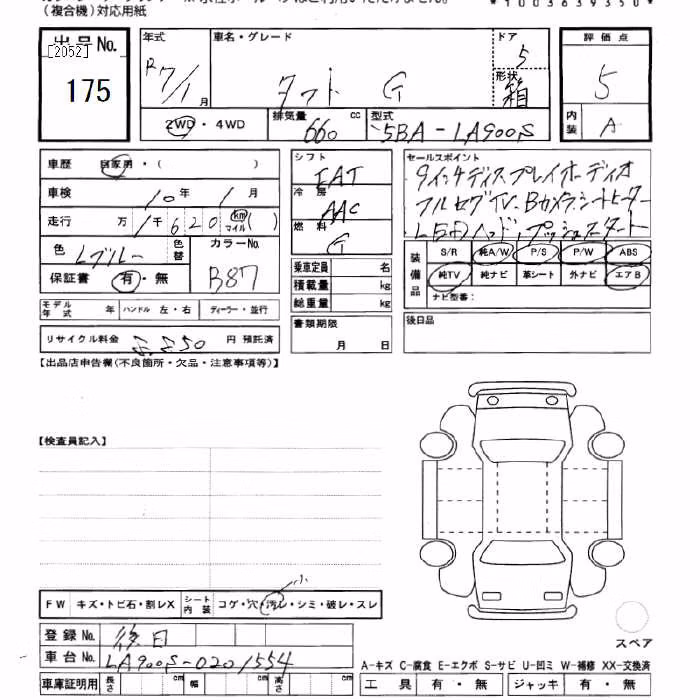 （複合機）対応用紙
*1003639350*
出品No.
[2052]
175
年式 R7/1月
車名・グレード タフト G
ドア 5
形状 箱
評価点 5
内装 A
2WD・4WD
排気量 660 cc
型式 5BA-LA900S
車歴 自家用・( )
車検 10年1月
走行 万1千620 km マイル( )
色 Lブルー
色替
カラーNo. B87
保証書 有・無
シフト IAT
冷房 AAC
燃料 G
乗車定員 名
積載量 kg
総重量 kg
セールスポイント
9インチディスプレイオーディオ
フルセグTV、Bカメラ、シートヒーター
LEDヘッド、プッシュスタート
装備品
S/R 純A/W P/S P/W ABS
純TV 純ナビ 革シート 外ナビ エアB
ナビ型番：
モデル年式 年 ハンドル 左・右 ディーラー・並行
書類期限 月 日
後日品
リサイクル料金 円 預託済
【出品店申告欄(不良箇所・欠品・注意事項等)】
【検査員記入】
小
FW キズ・トビ石・割レX シート内装 コゲ・穴・汚レ・シミ・破レ・スレ
登録No. 後日
車台No. LA900S-0201554
スペア
A-キズ C-腐食 E-エクボ S-サビ U-凹ミ W-補修 XX-交換済
車庫証明用 長さ cm 幅 cm 高さ cm
工具 有・無 ジャッキ 有・無